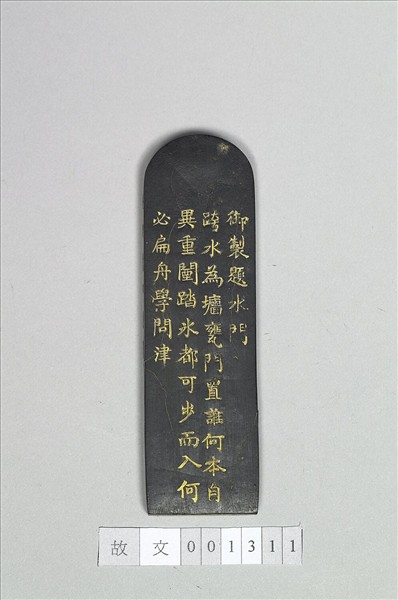 御製題水門
跨水為墻甕門置誰何本自
異重闉踏氷都可步而入何
必扁舟學問津
故文001311